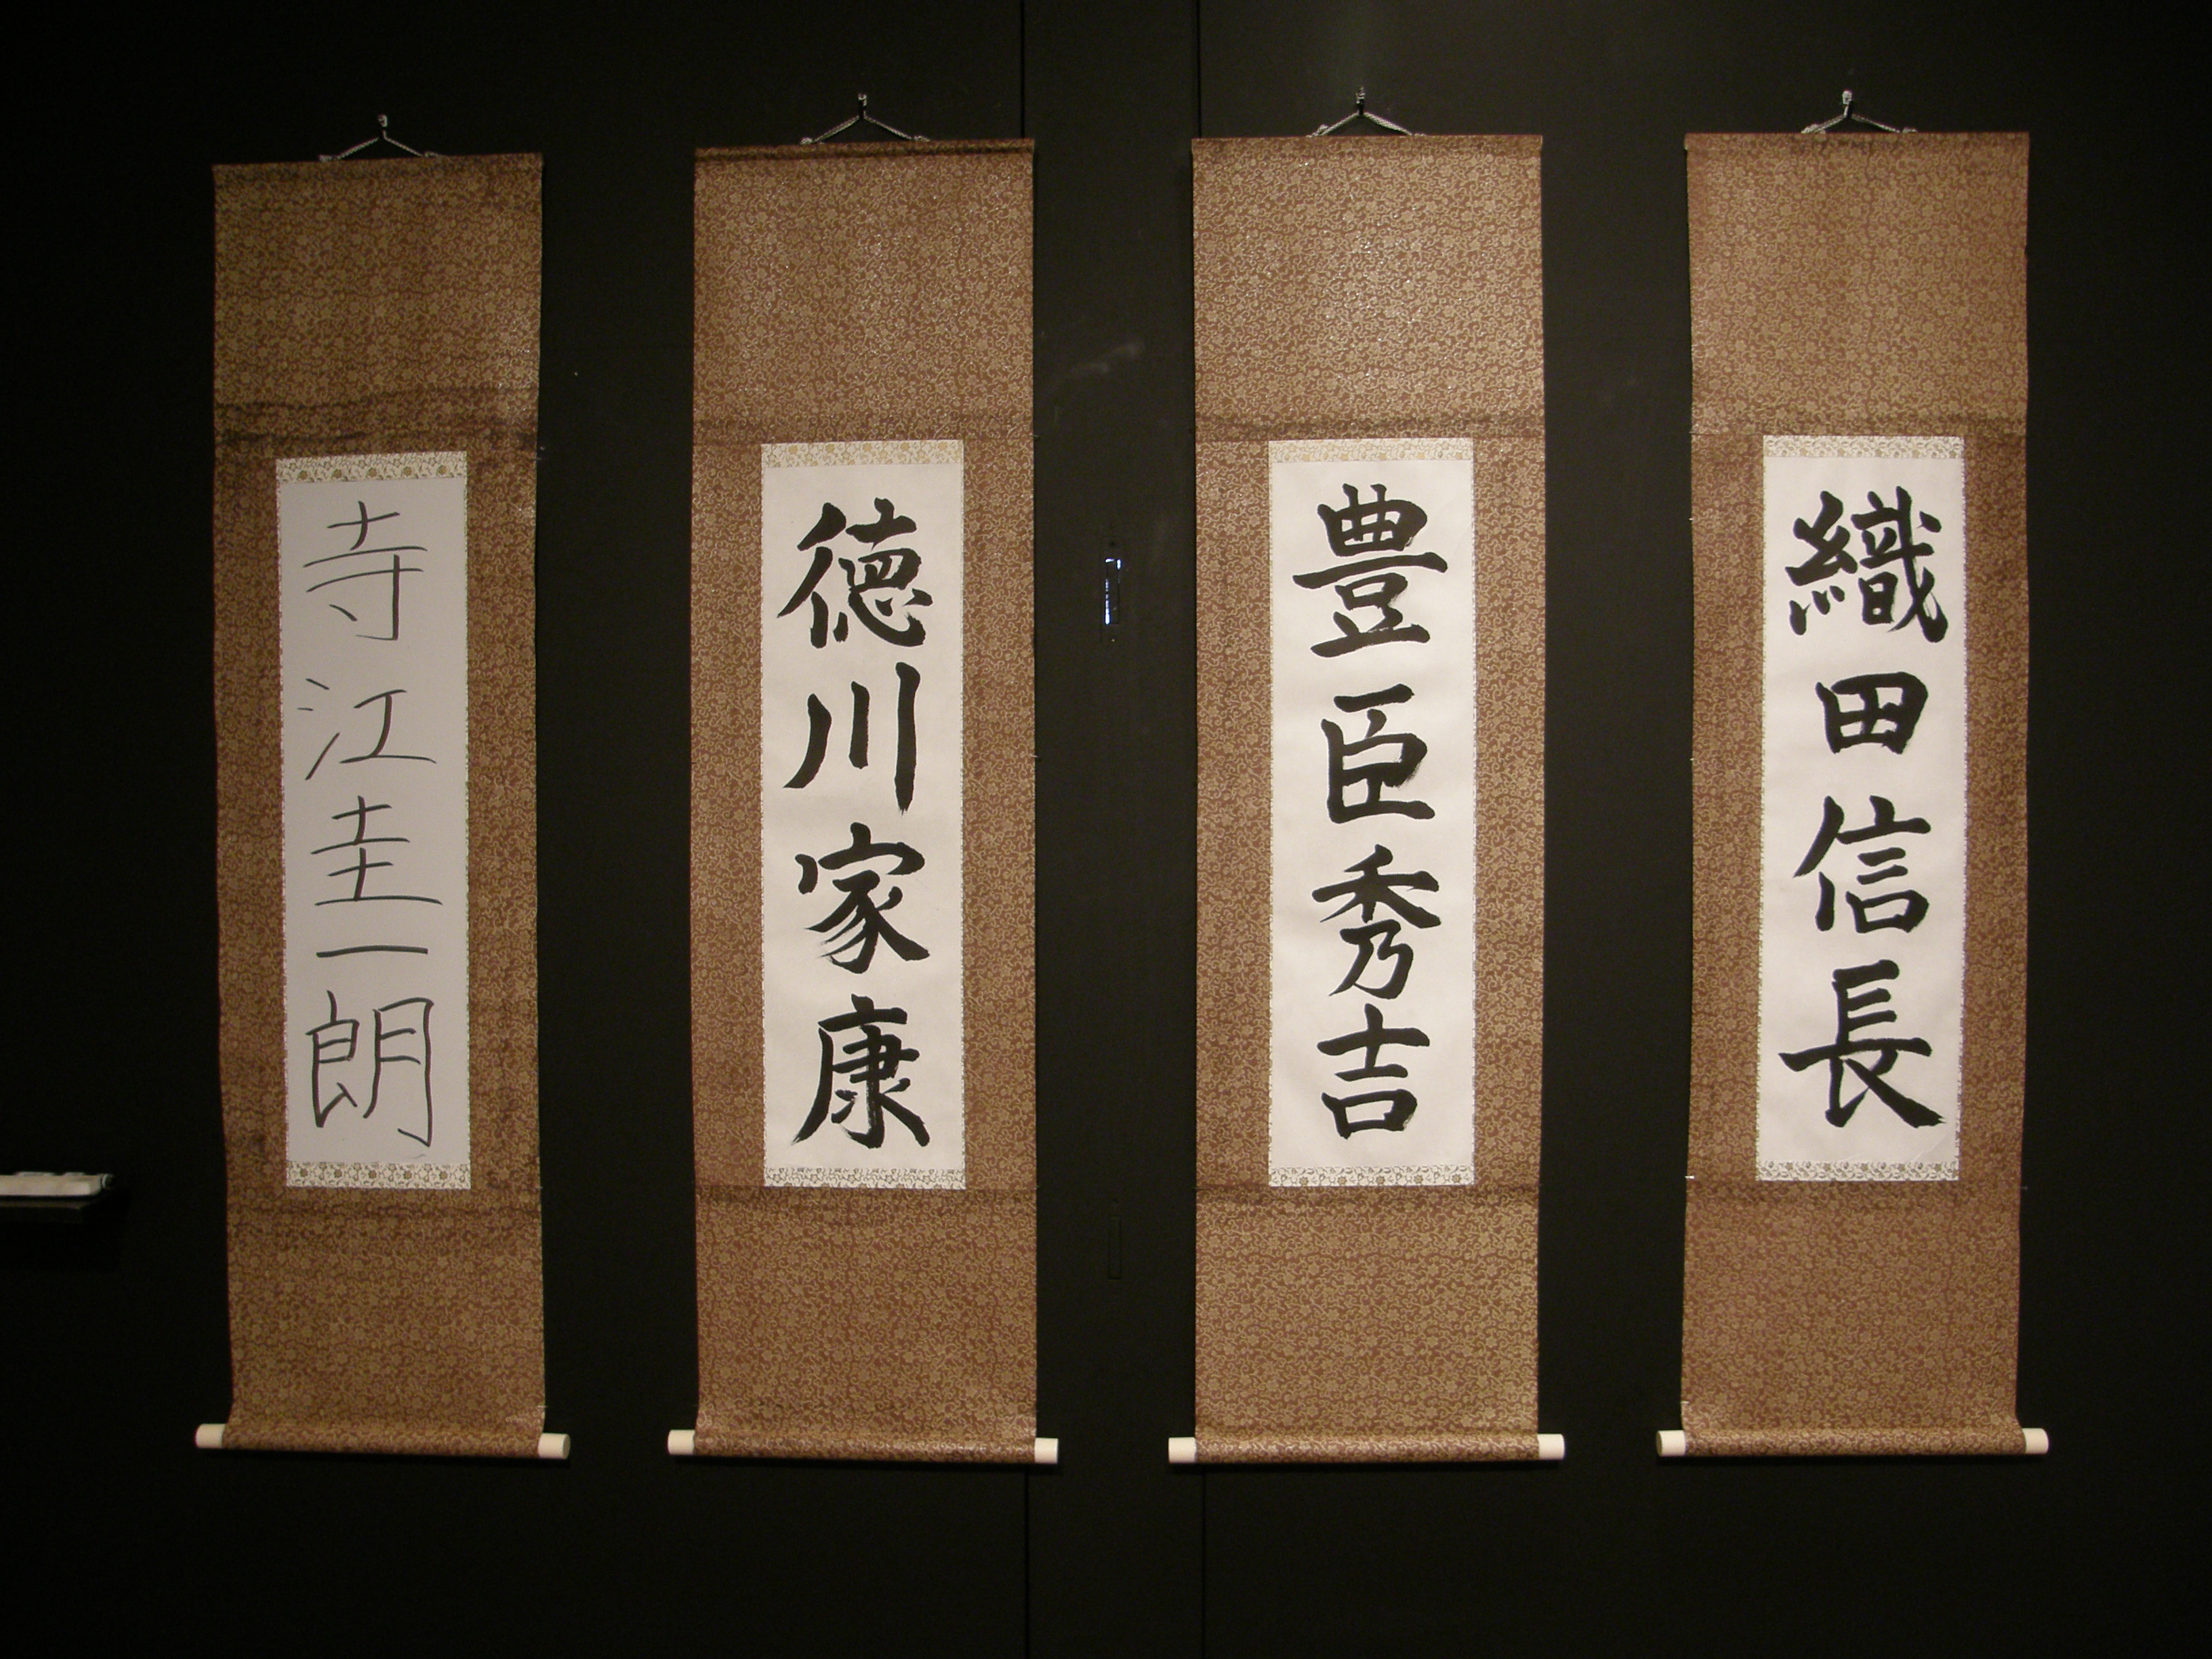 織田信長
豊臣秀吉
徳川家康
寺江圭一朗